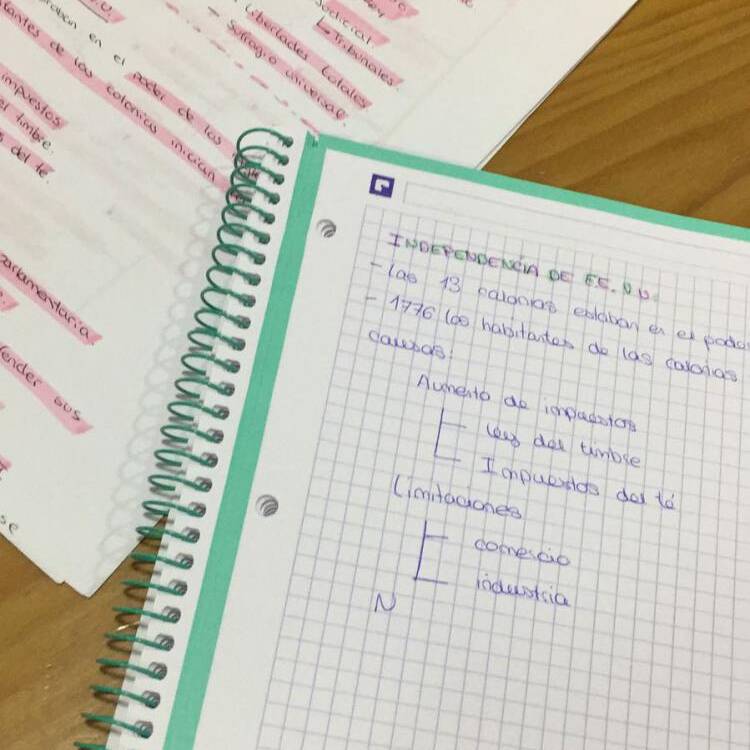 S.U.
estaban en el poder de los
habitantes de las colonias inician
impuestos
el timbre.
s del té.
Parlamentaria
fender sus
se
Judicial.
Tribunales.
- libertades totales
- Sufragio universal.
INDEPENDENCIA DE EE.UU.
- Las 13 colonias estaban en el poder
- 1776 los habitantes de las colonias
causas:
Aumento de impuestos
Ley del timbre
Impuestos del té
Limitaciones
comercio
industria
N